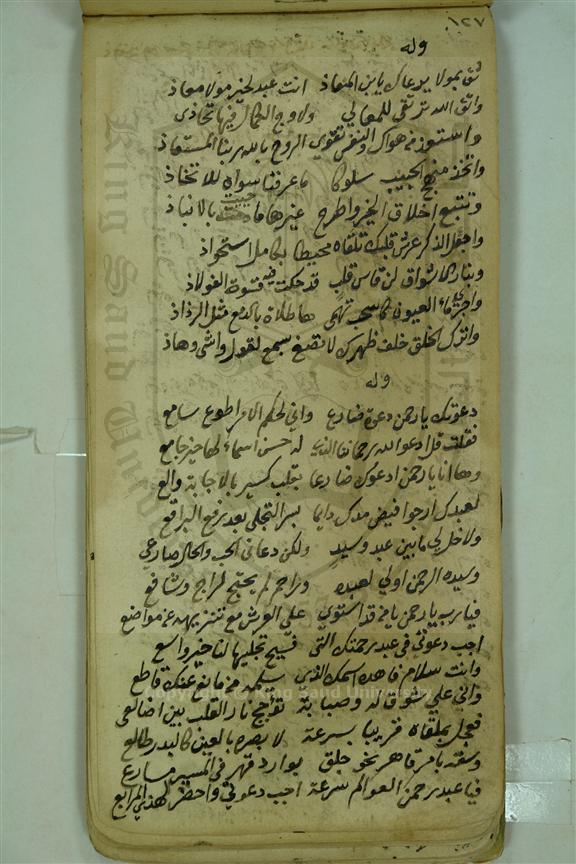 ١٢٧
وله
ثق بمولا يرعاك يا بن المعاذ انت عبد لخير مولا معاذ
واتق الله ترتقي للمعالي ولاوج الكمال فيها تحاذى
واستعذ من هواك والنفس تقوي الروح بالله ربنا المستعاذ
واتخذ منهج الحبيب سلوكا ما عرفنا سواه للاتخاذ
وتتبع اخلاق الخير واطرح غيرها بالانباذ
واجعل الذكر عرش قلبك تلقاه محيطا بكامل استحواذ
وبنار الاشواق لن قاس قلب قد حكت فيه قسوة الفولاذ
واجر ماء العيون كالسحب تهمى هاطلات بالدمع مثل الرذاذ
واترك الخلق خلف ظهرك لا تصغ بسمع لقول واشى وهاذ
وله
دعوتك يا رحمن دعوة ضارع واني لحكم الامر اطوع سامع
فقلت قل ادعوا الله رحماننا الذي له حسن اسماء لها خير جامع
وها انا يا رحمن ادعوك ضارعا بقلب كسير بالاجابة والع
لعبدك ارجوا فيض مدك دايما بسر التجلي بعد رفع البراقع
ولا خل لي ما بين عبد وسيد ولكن دعاني الحب والحال صارعي
وسيده الرحمن اولي لعبده وراحم لم يحتج لراج وشافع
فيا رب يا رحمن يا من قد استوي علي العرش مع تنزيهه عن مواضع
اجب دعوتي في عبد رحمتك التي فسيح تجليها لنا خير واسع
وانت سلام قاطع
واني علي شوق له وصبابة تؤجج نار القلب بين اضالعي
فعجل بملقاه قريبا بسرعة لابصره بالعين كالبدر طالع
وسقه بامر قاهر نحو جلق بوارد قهر في المسير مسارع
فيا عبد رحمن العوالم سرعة اجب دعوتي واحضر لهذي المرابع
Copyright © King Saud University
King Saud University